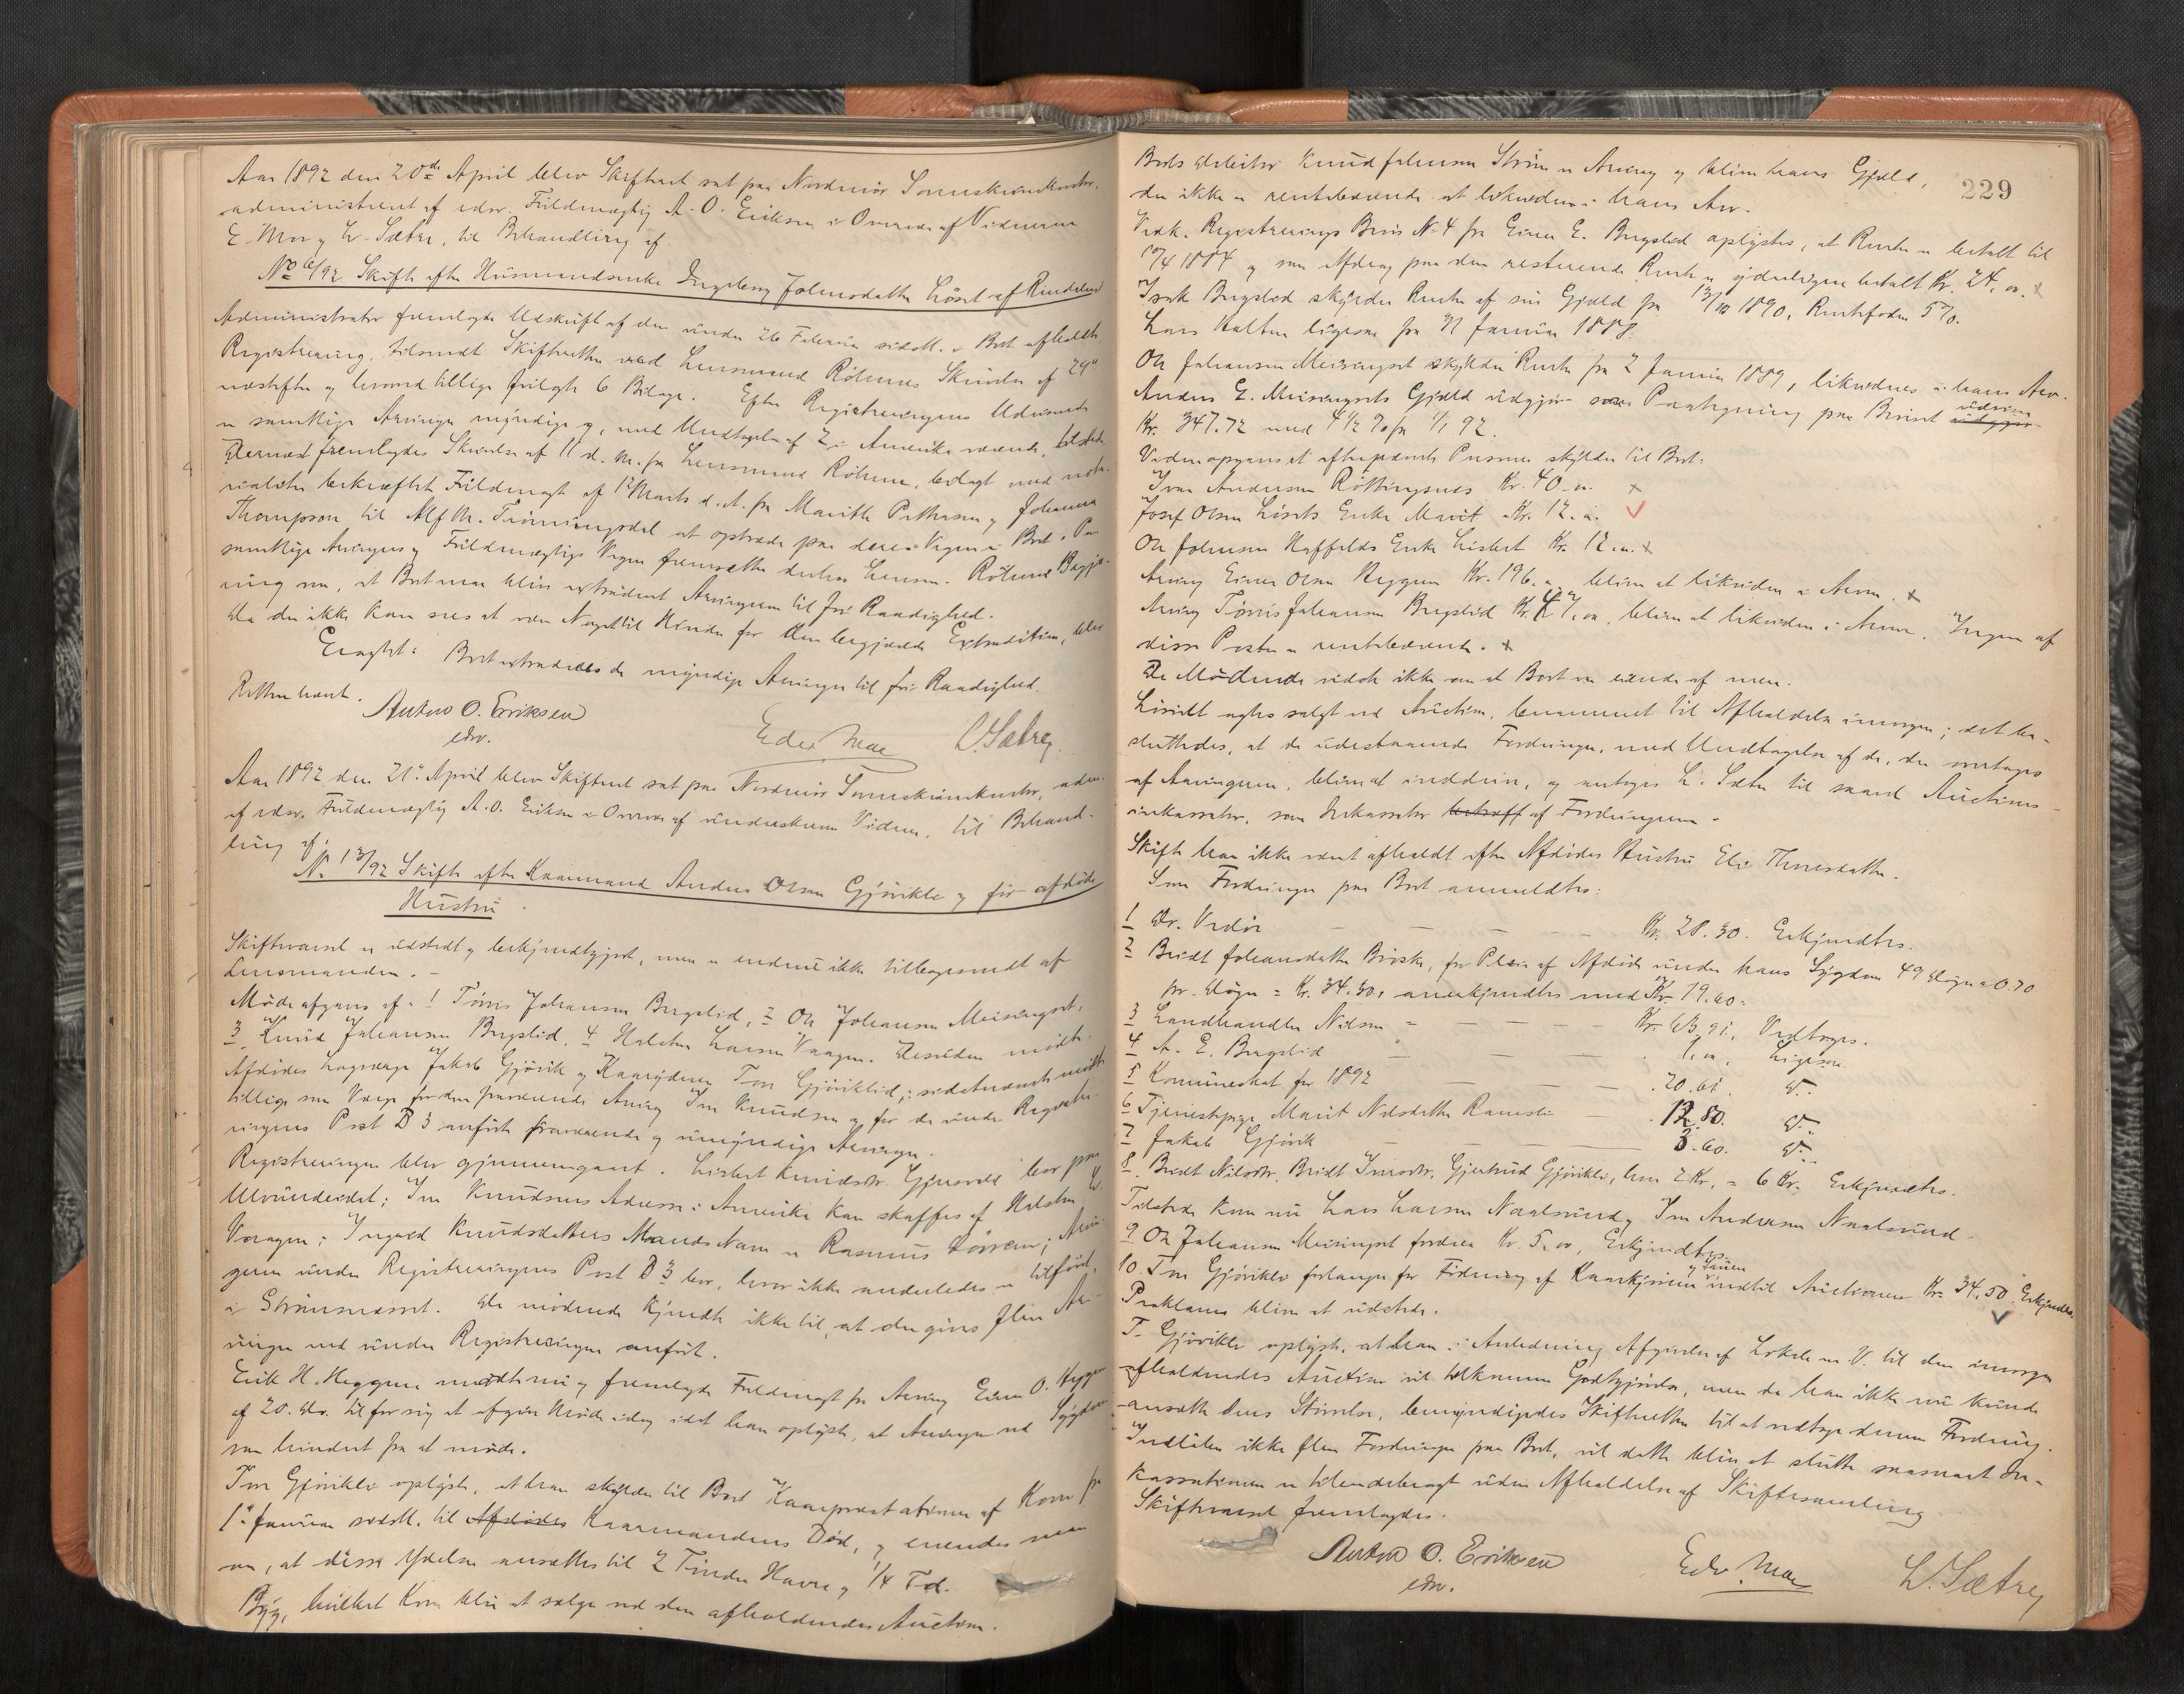 Aar 1892 den 20de April blev Skifteret sat paa Nordmør Sorenskriverkontor,
administreret af edsv. Fuldmægtig A. O. Eriksen i Overvær af Vidnerne
E. Moe og L. Sætre, til Behandling af
No 6/92 Skifte efter Husmandsenke Ingeborg Johnsdatter Løset af Rindalen
Administrator fremlagde Udskrift af den under 26 Februar sidstl. i Boet afholdte
Registrering, tilsendt Skifteretten med Lensmand Röhmes Skrivelse af 29de
næstefter og hvorved tillige fulgte 6 Bilage. Efter Registreringens Udvisende
er samtlige Arvinger myndige og, med Undtagelse af 2 i Amerika værende, tilstede.
Dernæst fremlagdes Skrivelse af 11 d. M. fra Lensmand Röhme, bilagt med nota-
rialiter bekræftet Fuldmagt af 1ste Marts d. A. fra Marith Pettersen og Johanna
Thompson til Alf M. Trønningsdal at optræde paa deres Vegne i Boet. Paa
samtlige Arvinges og Fuldmægtigs Vegne fremsætter derhos Lensm. Röhme Begjæ-
ring om, at Boet maa blive extraderet Arvingerne til fri Raadighed.
Da der ikke kan sees at være Noget til Hinder for den begjærede Extradition, blev
Eragtet: Boet extraderes de myndige Arvinger til fri Raadighed.
Retten hævet.
Anton O. Eriksen
edsv.
Edev Moe L. Sætre
Aar 1892 den 21de April blev Skifteret sat paa Nordmør Sorenskriverkontor, adm.
af edsv. Fuldmægtig A. O. Eriksen i Overvær af underskrevne Vidner, til Behand-
ling af:
No 13/92 Skifte efter Kaarmand Anders Olsen Gjøvikli og før afdøde
Hustru.
Skiftevarsel er udstedt og bekjendtgjort, men er endnu ikke tilbagesendt af
Lensmanden. -
Møde afgaves af: 1 Tøris Johansen Bugslid, 2 Ole Johansen Meisingset,
3 Knud Johansen Bugslid, 4 Halsten Larsen Vaagen. Desuden mødte
Afdødes Lagværge Jakob Gjøvik og Kaaryderen Tore Gjøvikli; sidstnævnte mødte
tillige som Værge for den fraværende Arving Iver Knudsen og for de under Registre-
ringens Post B 3 anførte fraværende og umyndige Arvinger.
Registreringen blev gjennemgaaet. Lisbet Knudsdtr. Gjeresvold bor paa
Ulvundeidet; Iver Knudsens Adresse i Amerika kan skaffes af Halsten L.
Vaagen; Ingrid Knudsdatters Mands Navn er Rasmus Løvren; Arvin-
gerne under Registreringens Post B 3 bor, hvor ikke anderledes er tilført,
i Strømsnæset. De mødende kjendte ikke til, at der gives flere Ar-
vinger end under Registreringen anført.
Erik H. Heggem mødte nu og fremlagde Fuldmagt fra Arving Einar O. Heggem
af 20. ds. til for sig at afgive Møde idag idet han oplyste, at Arvingen ved Sygdom
var hindret fra at møde.
Tore Gjøvikli oplyste, at han skylder til Boet Kaarprestationen af Korn fra
1ste Januar sidstl. til Afdødes Kaarmandens Død, og enedes man
om, at disse Ydelser ansættes til 2 Tønder Havre og 1/4 Td.
Byg, hvilket Korn bliver at sælge ved den afholdendes Auction.
229
Boets Debitor Knud Johnsen Strøm er Arving og bliver hans Gjæld,
der ikke er rentebærende at likvidere i hans Arv.
Vedk. Registrerings Bevis N. 4 fra Einar E. Bugslid oplystes, at Renten er betalt til
1884 og som Afdrag paa den resterende Rente er yderligere betalt Kr. 24,00. x
Isak Bugslid skylder Rente af sin Gjæld fra 13/10 1890, Rentefoden 5%.
Lars Halten ligesaa fra 11 Januar 1888.
Ole Johansen Meisingset skylder Rente fra 2 Januar 1889, likvideres i hans Arv.
Anders E. Meisingsets Gjæld udgjør som Paategning paa Beviset udviser
Kr. 347.72 med 4 1/2 % fra 1/1 92.
Videre opgaves at efternævnte Personer skylder til Boet:
Iver Andersen Röttingsnes Kr. 40.00. x
Josef Olsen Løsets Enke Marit Kr. 12.00. ✓
Ole Johnsen Haffelds Enke Lisbet Kr. 12.00. x
Arving Einar Olsen Heggem Kr. 196.00 bliver at likvidere i Arven. x
Arving Tønis Johansen Bugslid Kr. 47,00, bliver at likvidere i Arven. Ingen af
disse Poster er rentebærende. x
De Mødende vidste ikke om at Boet var eiende af mere.
Løsøret agtes solgt ved Auction, berammet til Afholdelse imorgen; det be-
sluttedes, at de udestaaende Fordringer, med Undtagelse af de, der overtages
af Arvingerne, bliver at inddrive, og antages L. Sætre til saavel Auctions-
inkassator, som Inkassator af Fordringerne.
Skifte har ikke været afholdt efter Afdødes Hustru Eli Thoresdatter.
Som Fordringer paa Boet anmeldtes:
1 Dr. Vedøe — — — Kr. 28.30. Erkjendtes.
2 Beret Johansdatter Brøske, for Pleie af Afdøde under hans Sygdom 49 Døgn a 0.70
pr. Døgn = Kr. 34.30, anerkjendtes med Kr. 19.60.
3 Landhandler Nilsen — — — Kr. 63.91, Vedtoges.
4 A. E. Bugslid — — — 1.00, Ligesaa.
5 Kommuneskat for 1892 — — 20.61, Do.
6 Tjenestepige Marit Nilsdatter Ramsli — 12.80. Do.
7 Jakob Gjøvik — — — 3.60. Do.
8. Beret Nilsdtr., Beret Iversdtr., Gjertrud Gjøvikli, hver 2 Kr. = 6 Kr. Erkjendtes.
Tilstede kom nu Lars Larsen Naalsund og Iver Andersen Naalsund.
9 Ole Johansen Meisingset fordrer Kr. 5,00, Erkjendtes.
10. Tore Gjøvikli forlanger for Fodring af Kaarkjørene og Sauen indtil Auctionen Kr. 34.50. Erkjendtes. ✓
Proklama bliver at udstede.
T. Gjøvikli oplyste, at han i Anledning Afgivelse af Lokale m. V. til den imorgen
afholdendes Auction vil tilkomme Godtgjørelse, men da han ikke nu kunde
ansætte dens Størrelse, bemyndigedes Skifteretten til at vedtage denne Fordring.
Indløber ikke flere Fordringer paa Boet, vil dette blive at slutte saasnart In-
kassationen er tilendebragt uden Afholdelse af Skiftesamling
Skiftevarsel fremlagdes.
Anton O. Eriksen
edsv.
Edv. Moe
L. Sætre